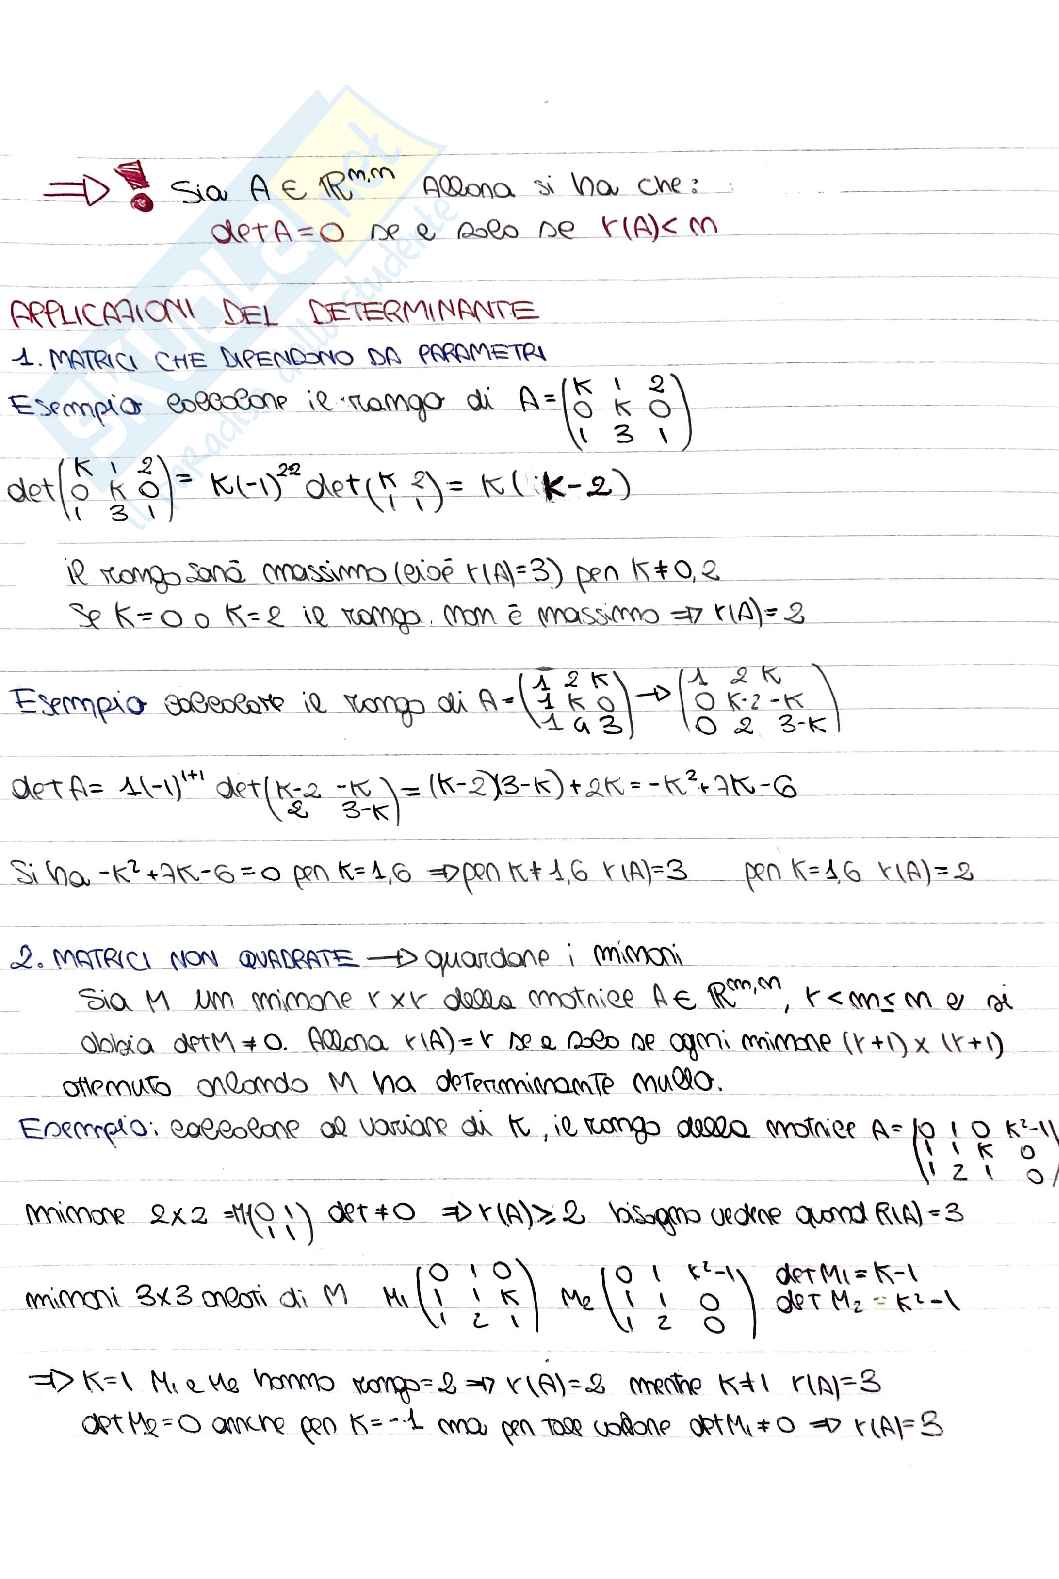 ⇒ ! Sia A ∈ ℝⁿ,ⁿ Allora si ha che:
det A = 0 se e solo se r(A) < n
APPLICAZIONI DEL DETERMINANTE
1. MATRICI CHE DIPENDONO DA PARAMETRI
Esempio calcolare il rango di A = (K 1 2 / 0 K 0 / 1 3 1)
det(K 1 2 / 0 K 0 / 1 3 1) = K(-1)²² det(K 2 / 1 1) = K(K-2)
il rango sarà massimo (cioè r(A)=3) per K≠0,2
Se K=0 o K=2 il rango non è massimo ⇒ r(A)=2
Esempio calcolare il rango di A = (1 2 K / 1 K 0 / 1 4 3) → (1 2 K / 0 K-2 -K / 0 2 3-K)
det A = 1(-1)¹⁺¹ det(K-2 -K / 2 3-K) = (K-2)(3-K)+2K = -K²+7K-6
Si ha -K²+7K-6=0 per K=1,6 ⇒ per K≠1,6 r(A)=3 per K=1,6 r(A)=2
2. MATRICI NON QUADRATE → guardare i minori
Sia M un minore r×r della matrice A ∈ ℝᵐ,ⁿ, r<m≤n e si
abbia det M ≠ 0. Allora r(A)=r se e solo se ogni minore (r+1)×(r+1)
ottenuto orlando M ha determinante nullo.
Esempio: calcolare al variare di K, il rango della matrice A = (0 1 0 K²-1 / 1 1 K 0 / 1 2 1 0)
minore 2×2 = M(0 1 / 1 1) det≠0 ⇒ r(A)≥2 bisogna vedere quand R(A)=3
minori 3×3 orlati di M M₁(0 1 0 / 1 1 K / 1 2 1) M₂(0 1 K²-1 / 1 1 0 / 1 2 0) det M₁ = K-1
det M₂ = K²-1
⇒ K=1 M₁ e M₂ hanno rango=2 ⇒ r(A)=2 mentre K≠1 r(A)=3
det M₂=0 anche per K=-1 ma per tale valore det M₁≠0 ⇒ r(A)=3
SKUOLA.net